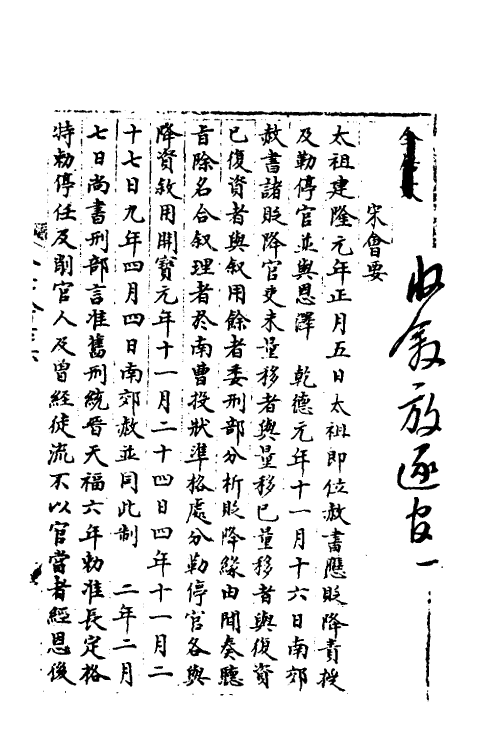 收叙放逐官一
宋會要
太祖建隆元年正月五日太祖即位赦書應貶降責授
及勒停官並與恩澤　乾德元年十一月十六日南郊
赦書諸貶降官吏未量移者與量移已量移者與復資
已復資者與叙用餘者委刑部分析貶降緣由聞奏聽
旨除名合叙理者於南曹投狀準格處分勒停官各與
降資敘用開寶元年十一月二十四日四年十一月二
十七日九年四月四日南郊赦並同此制　二年二月
七日尚書刑部言准舊刑統晉天福六年勅准長定格
特勅停任及削官人及曾經徒流不以官當者經恩後